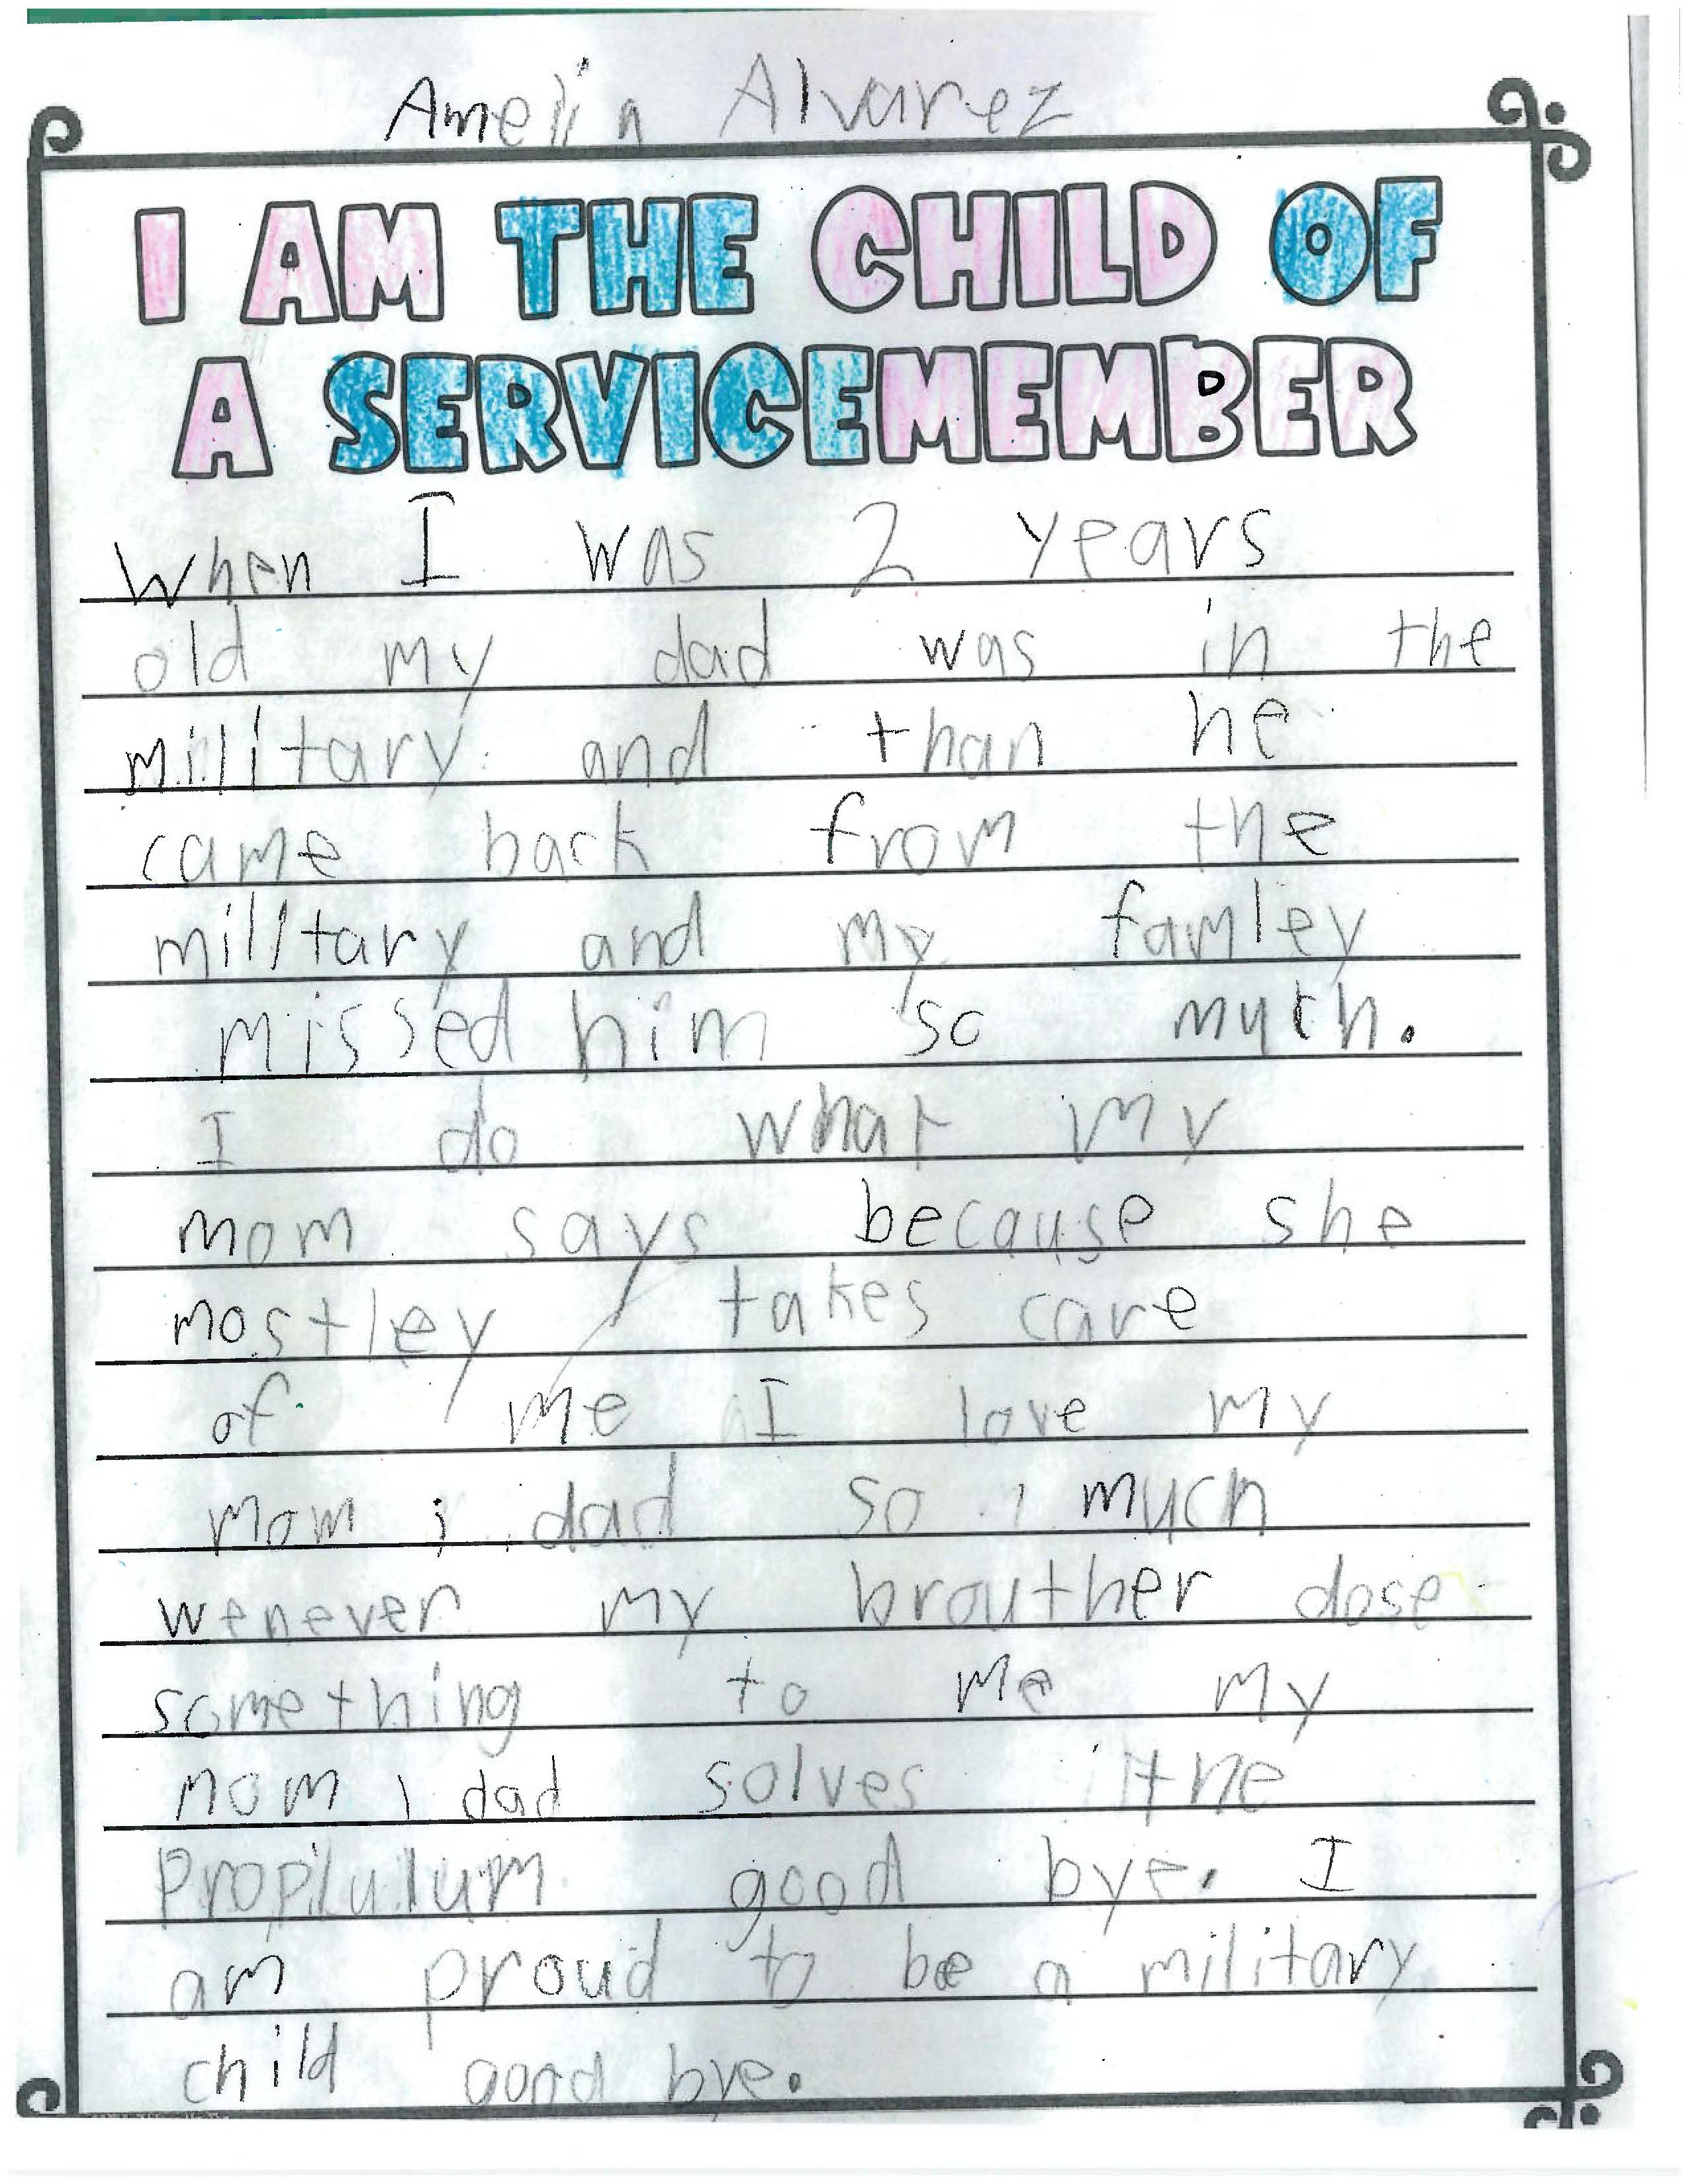 Amelia Alvarez
I AM THE CHILD OF
A SERVICEMEMBER
When I was 2 years
old my dad was in the
military and than he
came back from the
military and my famley
missed him so much.
I do what my
mom says because she
mostley takes care
of me I love my
mom, dad so much
wenever my brouther dose
something to me my
mom, dad solves the
good bye. I
am proud to be a military
child good bye.